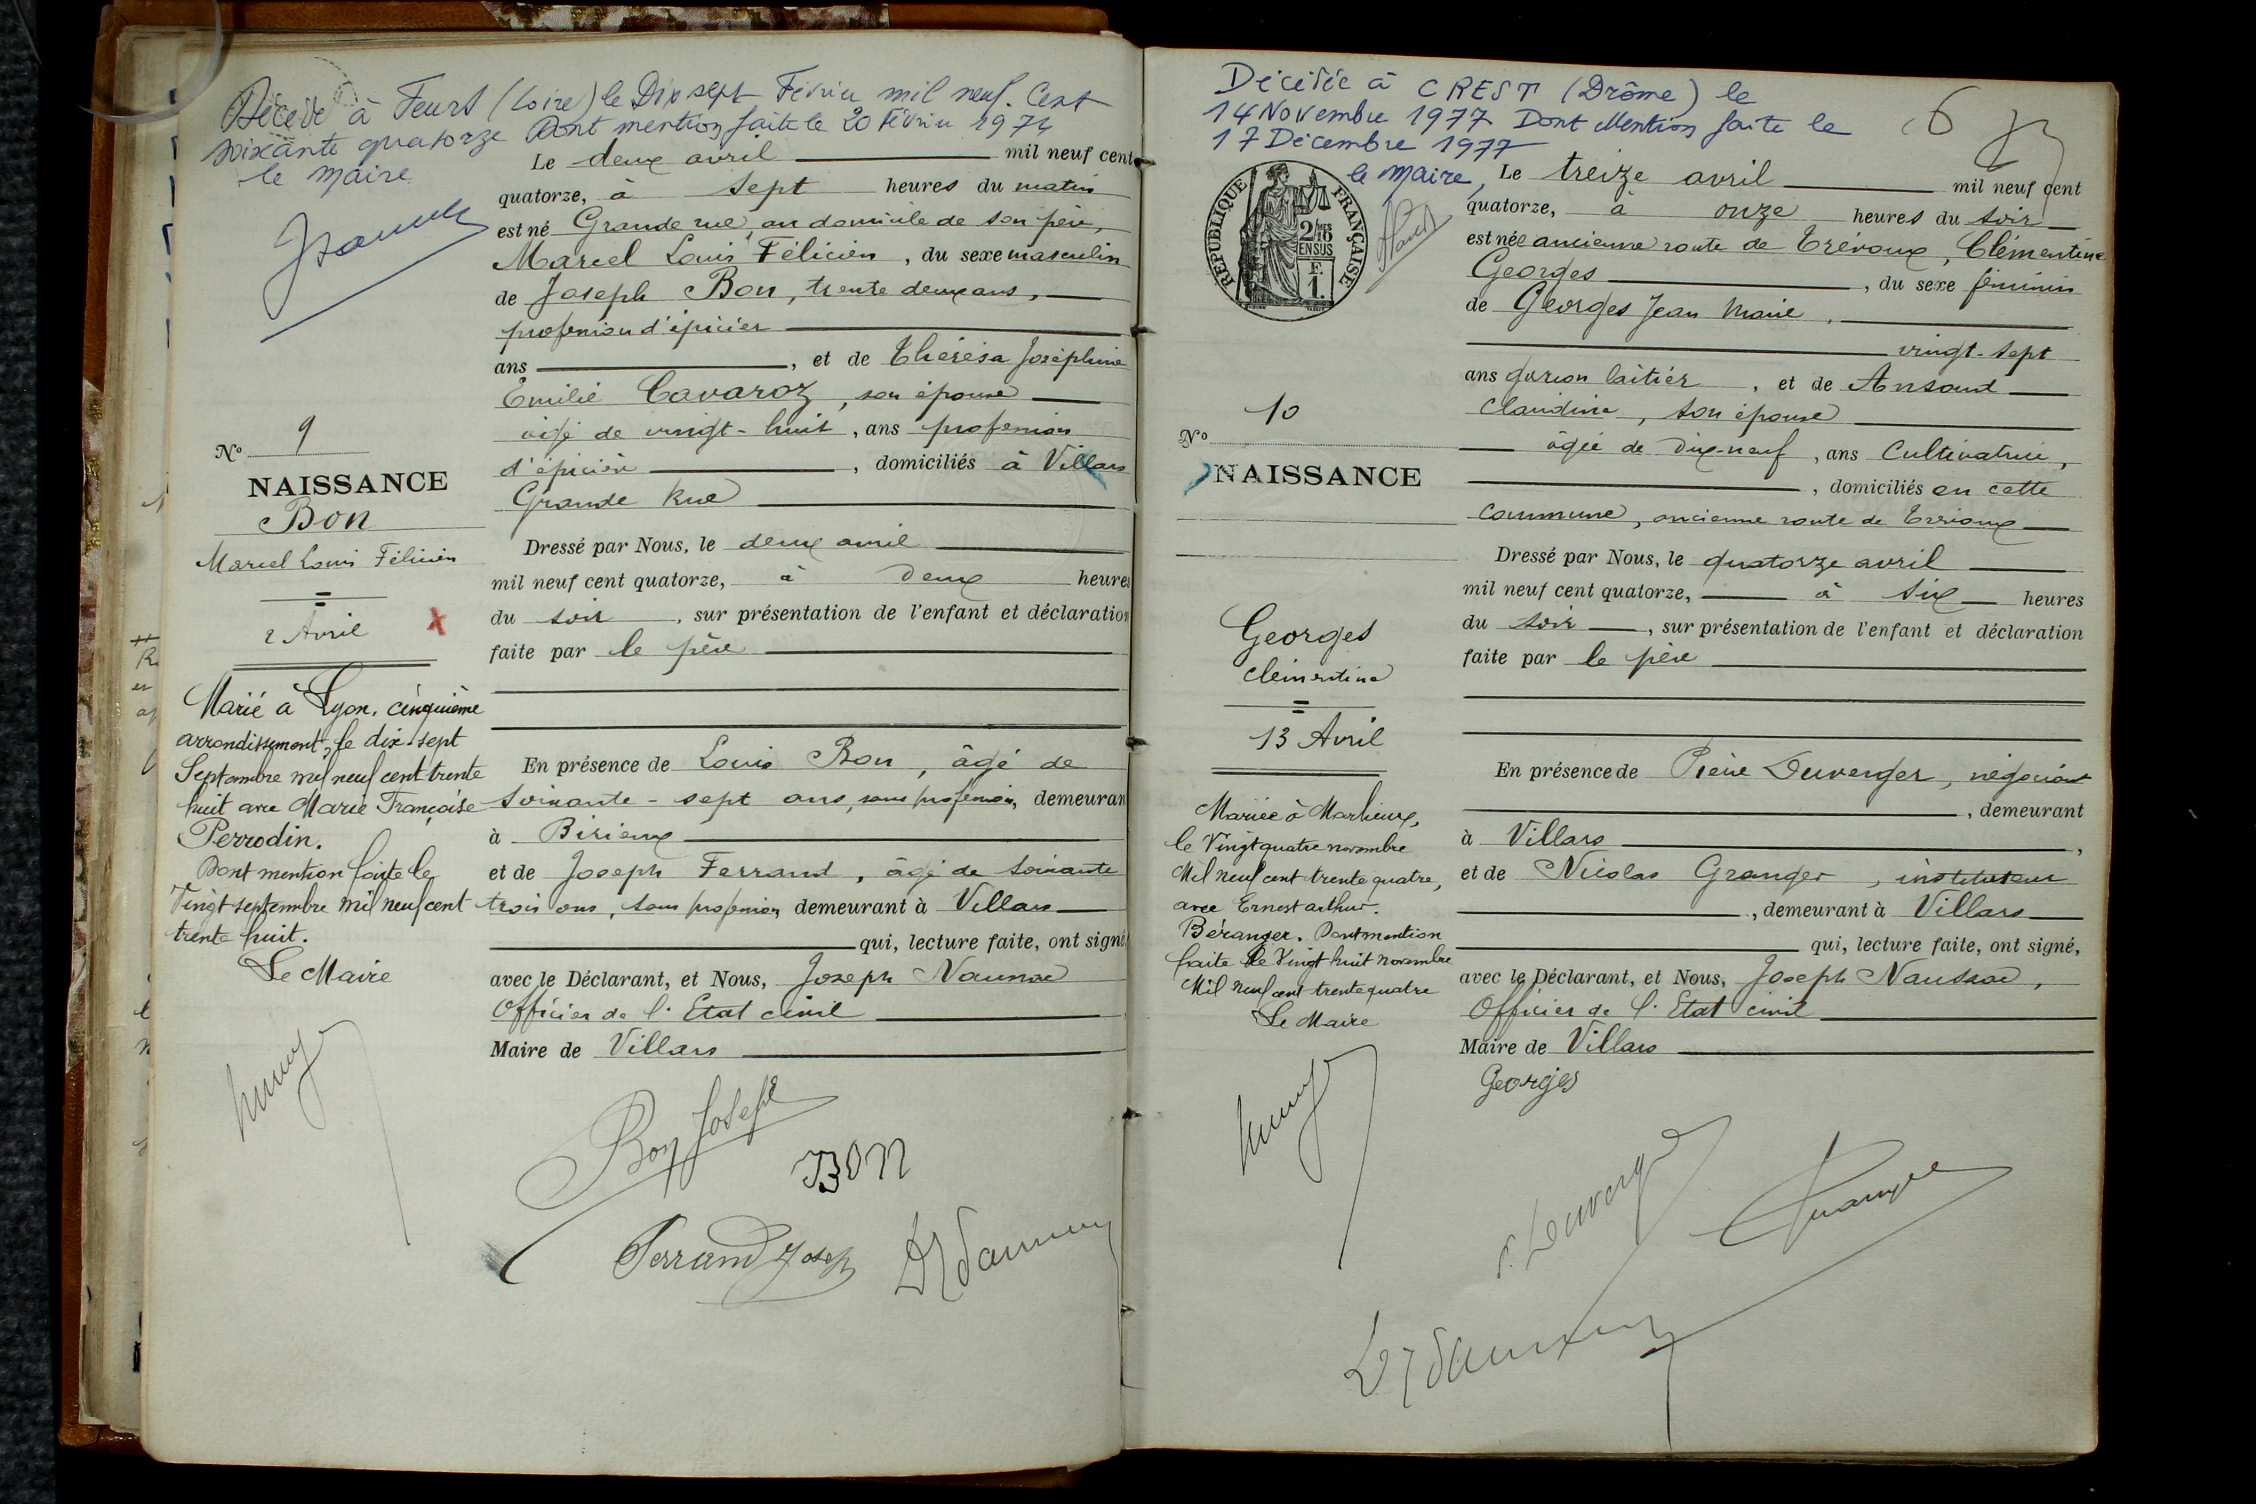 Décédé à Feurs (Loire) le Dix sept Février mil neuf. Cent
soixante quatorze Dont mention faite le 20 Février 1974
le Maire
Le deux avril mil neuf cent
quatorze, à sept heures du matin
est né Grande rue, au domicile de son père,
Marcel Louis Félicien, du sexe masculin
de Joseph Bon, trente deux ans,
profession d'épicier
ans, et de Thérésa Joséphine
Emilie Cavaroz, son épouse
âgé de vingt-huit, ans profession
d'épicière, domiciliés à Villars
Grande Rue
Dressé par Nous, le deux avril
mil neuf cent quatorze, à deux heures
du soir, sur présentation de l'enfant et déclaration
faite par le père
En présence de Louis Bon, âgé de
soixante-sept ans, sans profession, demeurant
à Birieux
et de Joseph Ferrand, âgé de soixante
trois ans, sans profession demeurant à Villars
qui, lecture faite, ont signé
avec le Déclarant, et Nous, Joseph Naussac
Officier de l'Etat civil
Maire de Villars
Bon Joseph
BON
Ferrand Joseph
N° 9
NAISSANCE
Bon
Marcel Louis Félicien
2 Avril
X
Marié à Lyon, cinquième
arrondissement, le dix-sept
Septembre mil neuf cent trente
huit avec Marie Françoise
Perrodin.
Dont mention faite le
Vingt septembre mil neuf cent
trente huit.
Le Maire
Décédée à CREST (Drôme) le
14 Novembre 1977 Dont Mention faite le
17 Décembre 1977
le Maire,
6
RÉPUBLIQUE FRANÇAISE
2/10
EN SUS
F.
1.
Le treize avril mil neuf cent
quatorze, à onze heures du soir
est née ancienne route de Trévoux, Clémentine
Georges, du sexe féminin
de Georges Jean Marie,
vingt-sept
ans garçon laitier, et de Ansoud
Claudine, son épouse
âgée de dix-neuf, ans Cultivatrice,
, domiciliés en cette
commune, ancienne route de Trévoux
Dressé par Nous, le quatorze avril
mil neuf cent quatorze, à six heures
du soir, sur présentation de l'enfant et déclaration
faite par le père
En présence de Pierre Duverger, négociant
, demeurant
à Villars,
et de Nicolas Granger, instituteur
, demeurant à Villars
qui, lecture faite, ont signé,
avec le Déclarant, et Nous, Joseph Naussac,
Officier de l'Etat civil
Maire de Villars
Georges
P. Duverger
Granger
N° 10
NAISSANCE
Georges
Clémentine
13 Avril
Mariée à Marlieux,
le Vingt quatre novembre
Mil neuf cent trente quatre,
avec Ernest arthur.
Béranger. Dont mention
faite le Vingt huit novembre
Mil neuf cent trente quatre
Le Maire